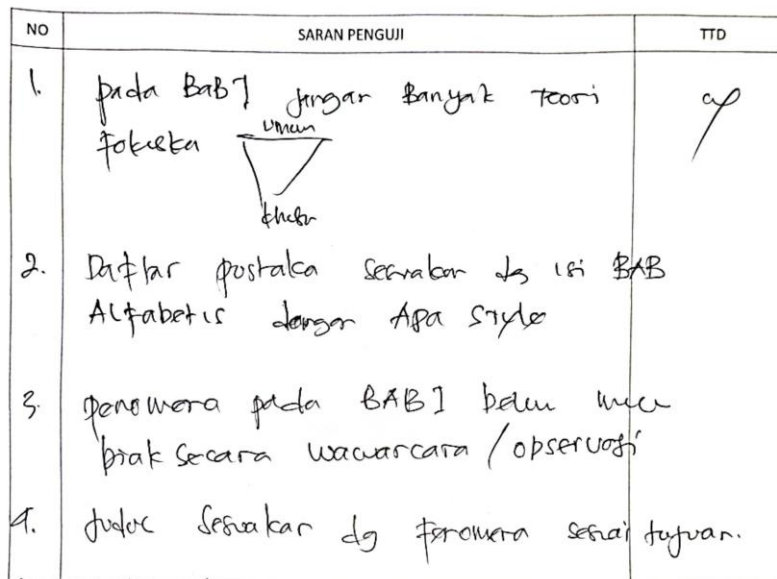 NO SARAN PENGUJI TTD
1. pada BAB I jangan Banyak teori
Fokuska
umum
khusu
2. Daftar pustaka sesuaikan dg isi BAB
Alfabetis dengan Apa Style
3. penomena pada BAB I belum
baik secara wawarcara / opservasi
4. Judul Sesuaikan dg Fenomena sesuai tujuan.